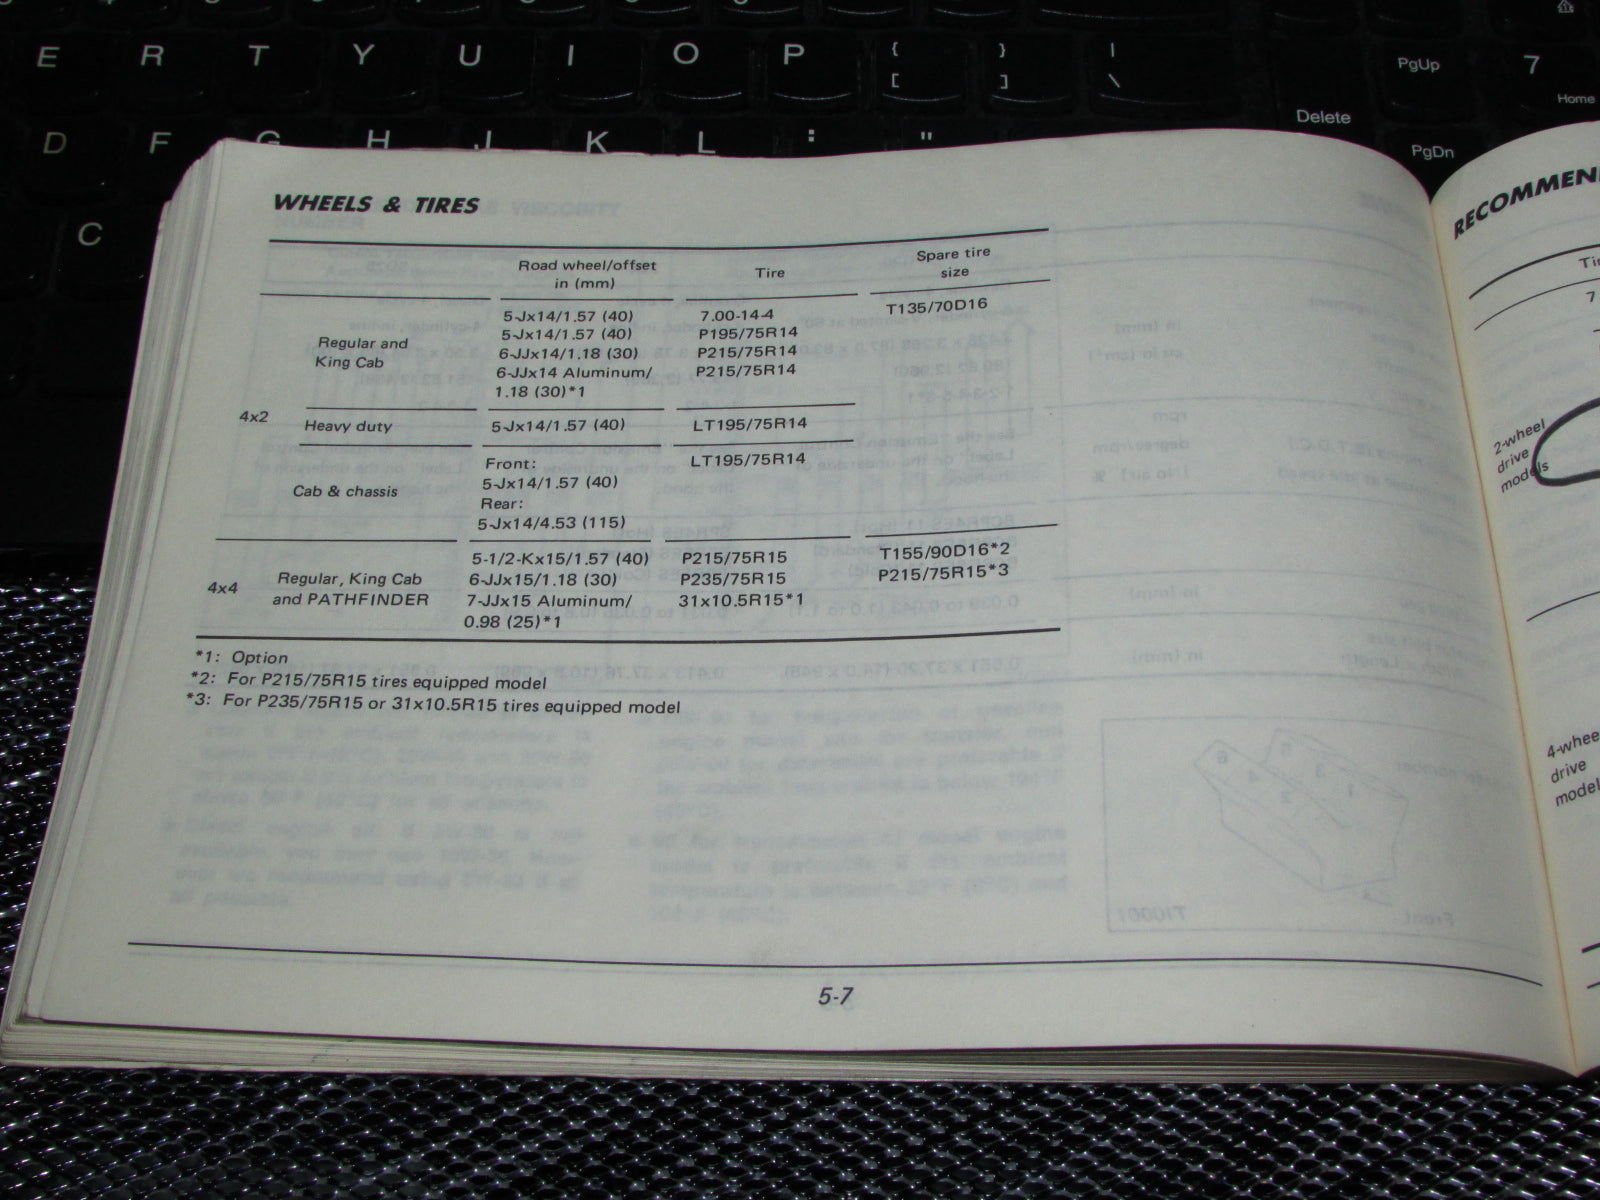 E R T Y U I O P { [ } ] | \ PgUp 7 Home
Delete
D F G H J K L : " PgDn
C
WHEELS & TIRES
Road wheel/offset in (mm) Tire Spare tire size
4x2
Regular and King Cab
5-Jx14/1.57 (40) 7.00-14-4 T135/70D16
5-Jx14/1.57 (40) P195/75R14
6-JJx14/1.18 (30) P215/75R14
6-JJx14 Aluminum/ P215/75R14
1.18 (30)*1
Heavy duty 5-Jx14/1.57 (40) LT195/75R14
Cab & chassis
Front: LT195/75R14
5-Jx14/1.57 (40)
Rear:
5-Jx14/4.53 (115)
4x4
Regular, King Cab
and PATHFINDER
5-1/2-Kx15/1.57 (40) P215/75R15 T155/90D16*2
6-JJx15/1.18 (30) P235/75R15 P215/75R15*3
7-JJx15 Aluminum/ 31x10.5R15*1
0.98 (25)*1
*1: Option
*2: For P215/75R15 tires equipped model
*3: For P235/75R15 or 31x10.5R15 tires equipped model
5-7
RECOMMEN
Ti
7
2-wheel
drive
models
4-whee
drive
model